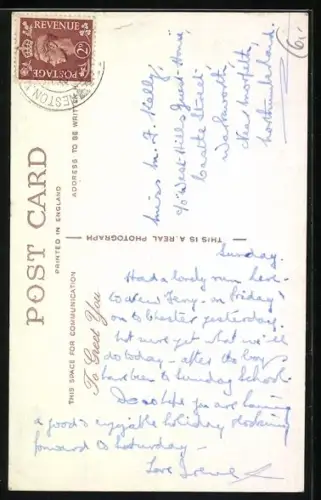 (6/-
REVENUE
2D
POSTAGE
POST CARD
PRINTED IN ENGLAND
THIS SPACE FOR COMMUNICATION
ADDRESS TO BE WRITTEN
To Greet You
THIS IS A REAL PHOTOGRAPH
Miss M. F. Kelly,
c/o West Hills Guest House,
Castle Street,
Warkworth,
near Morpeth,
Northumberland.
Sunday.
Had a lovely run here
to New Ferry on Friday &
on to Chester yesterday.
Not sure yet what we'll
do today - after the boys
have been to Sunday School.
Do so hope you are having
a good & enjoyable holiday. Looking
forward to Saturday -
Love Irene x